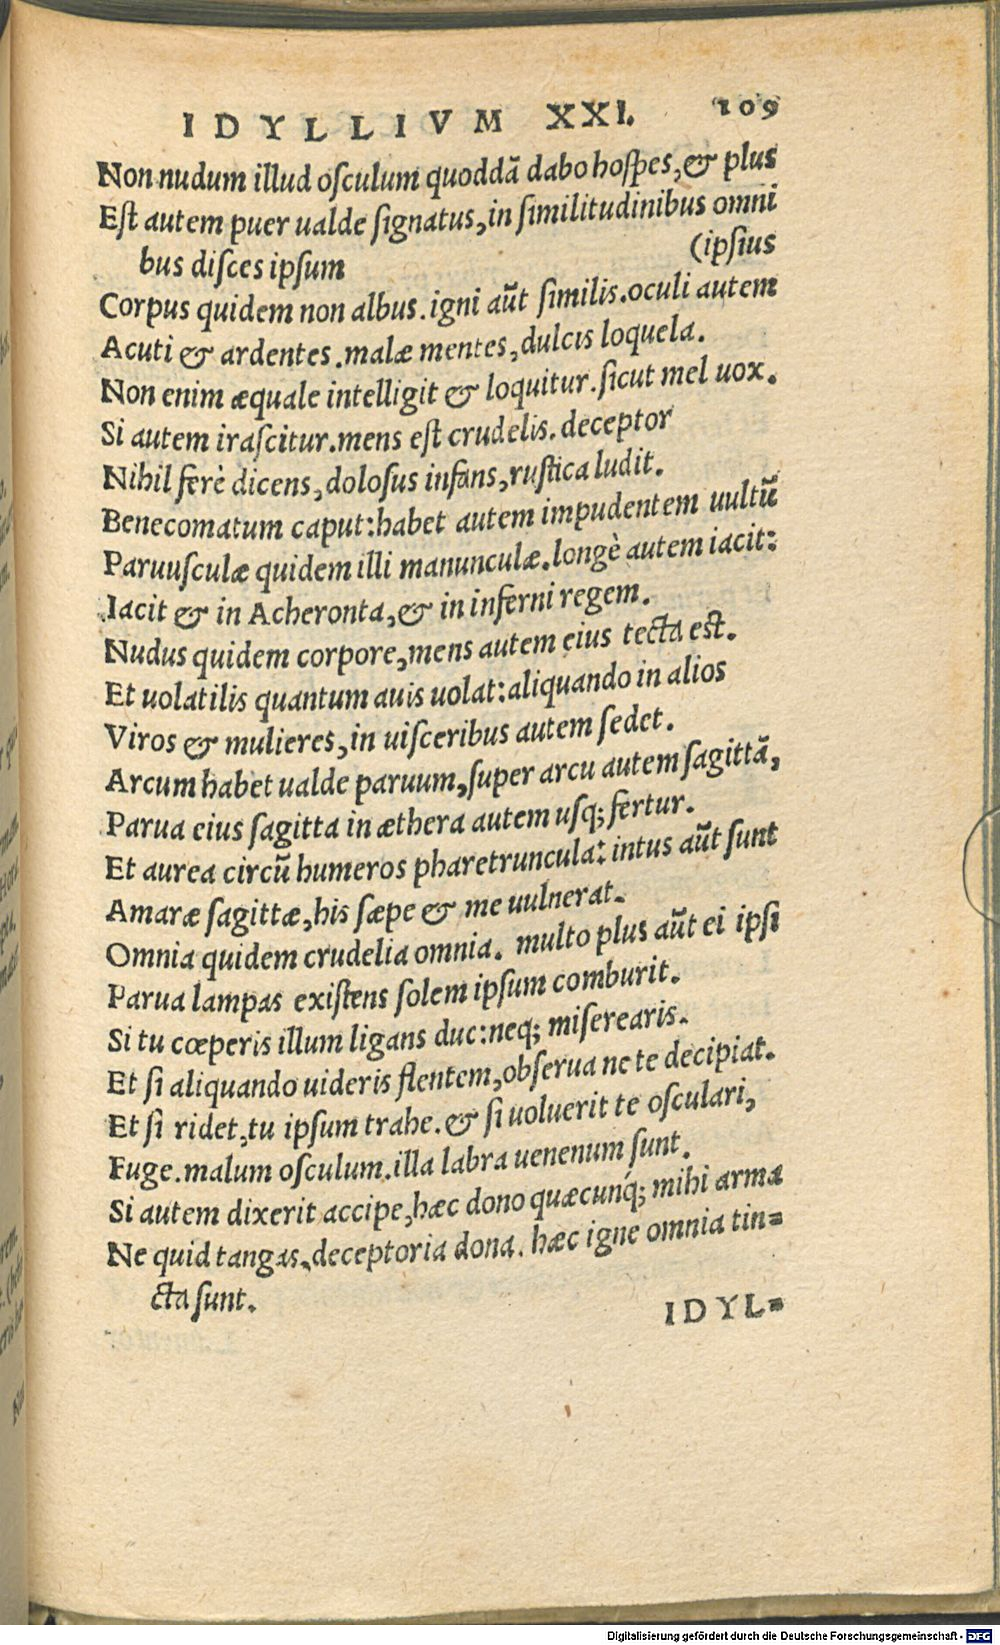 IDYLLIVM XXI. 109
Non nudum illud oſculum quoddã dabo hoſpes, & plus
Eſt autem puer ualde ſignatus, in ſimilitudinibus omni
bus diſces ipſum (ipſius
Corpus quidem non albus. igni aũt ſimilis. oculi autem
Acuti & ardentes. malæ mentes, dulcis loquela.
Non enim æquale intelligit & loquitur. ſicut mel uox.
Si autem iraſcitur. mens eſt crudelis. deceptor
Nihil ferè dicens, doloſus infans, ruſtica ludit.
Benecomatum caput: habet autem impudentem uultũ
Paruuſculæ quidem illi manunculæ. longè autem iacit:
Iacit & in Acheronta, & in inferni regem.
Nudus quidem corpore, mens autem eius tecta eſt.
Et uolatilis quantum auis uolat: aliquando in alios
Viros & mulieres, in uiſceribus autem ſedet.
Arcum habet ualde paruum, ſuper arcu autem ſagittã,
Parua eius ſagitta in æthera autem uſq; fertur.
Et aurea circũ humeros pharetruncula: intus aũt ſunt
Amaræ ſagittæ, his ſæpe & me uulnerat.
Omnia quidem crudelia omnia. multo plus aũt ei ipſi
Parua lampas exiſtens ſolem ipſum comburit.
Si tu cœperis illum ligans duc: neq; miſerearis.
Et ſi aliquando uideris flentem, obſerua ne te decipiat.
Et ſi ridet, tu ipſum trahe. & ſi uoluerit te oſculari,
Fuge. malum oſculum. illa labra uenenum ſunt.
Si autem dixerit accipe, hæc dono quæcunq́; mihi arma
Ne quid tangas, deceptoria dona. hæc igne omnia tin=
cta ſunt.
IDYL=
Digitalisierung gefördert durch die Deutsche Forschungsgemeinschaft - DFG